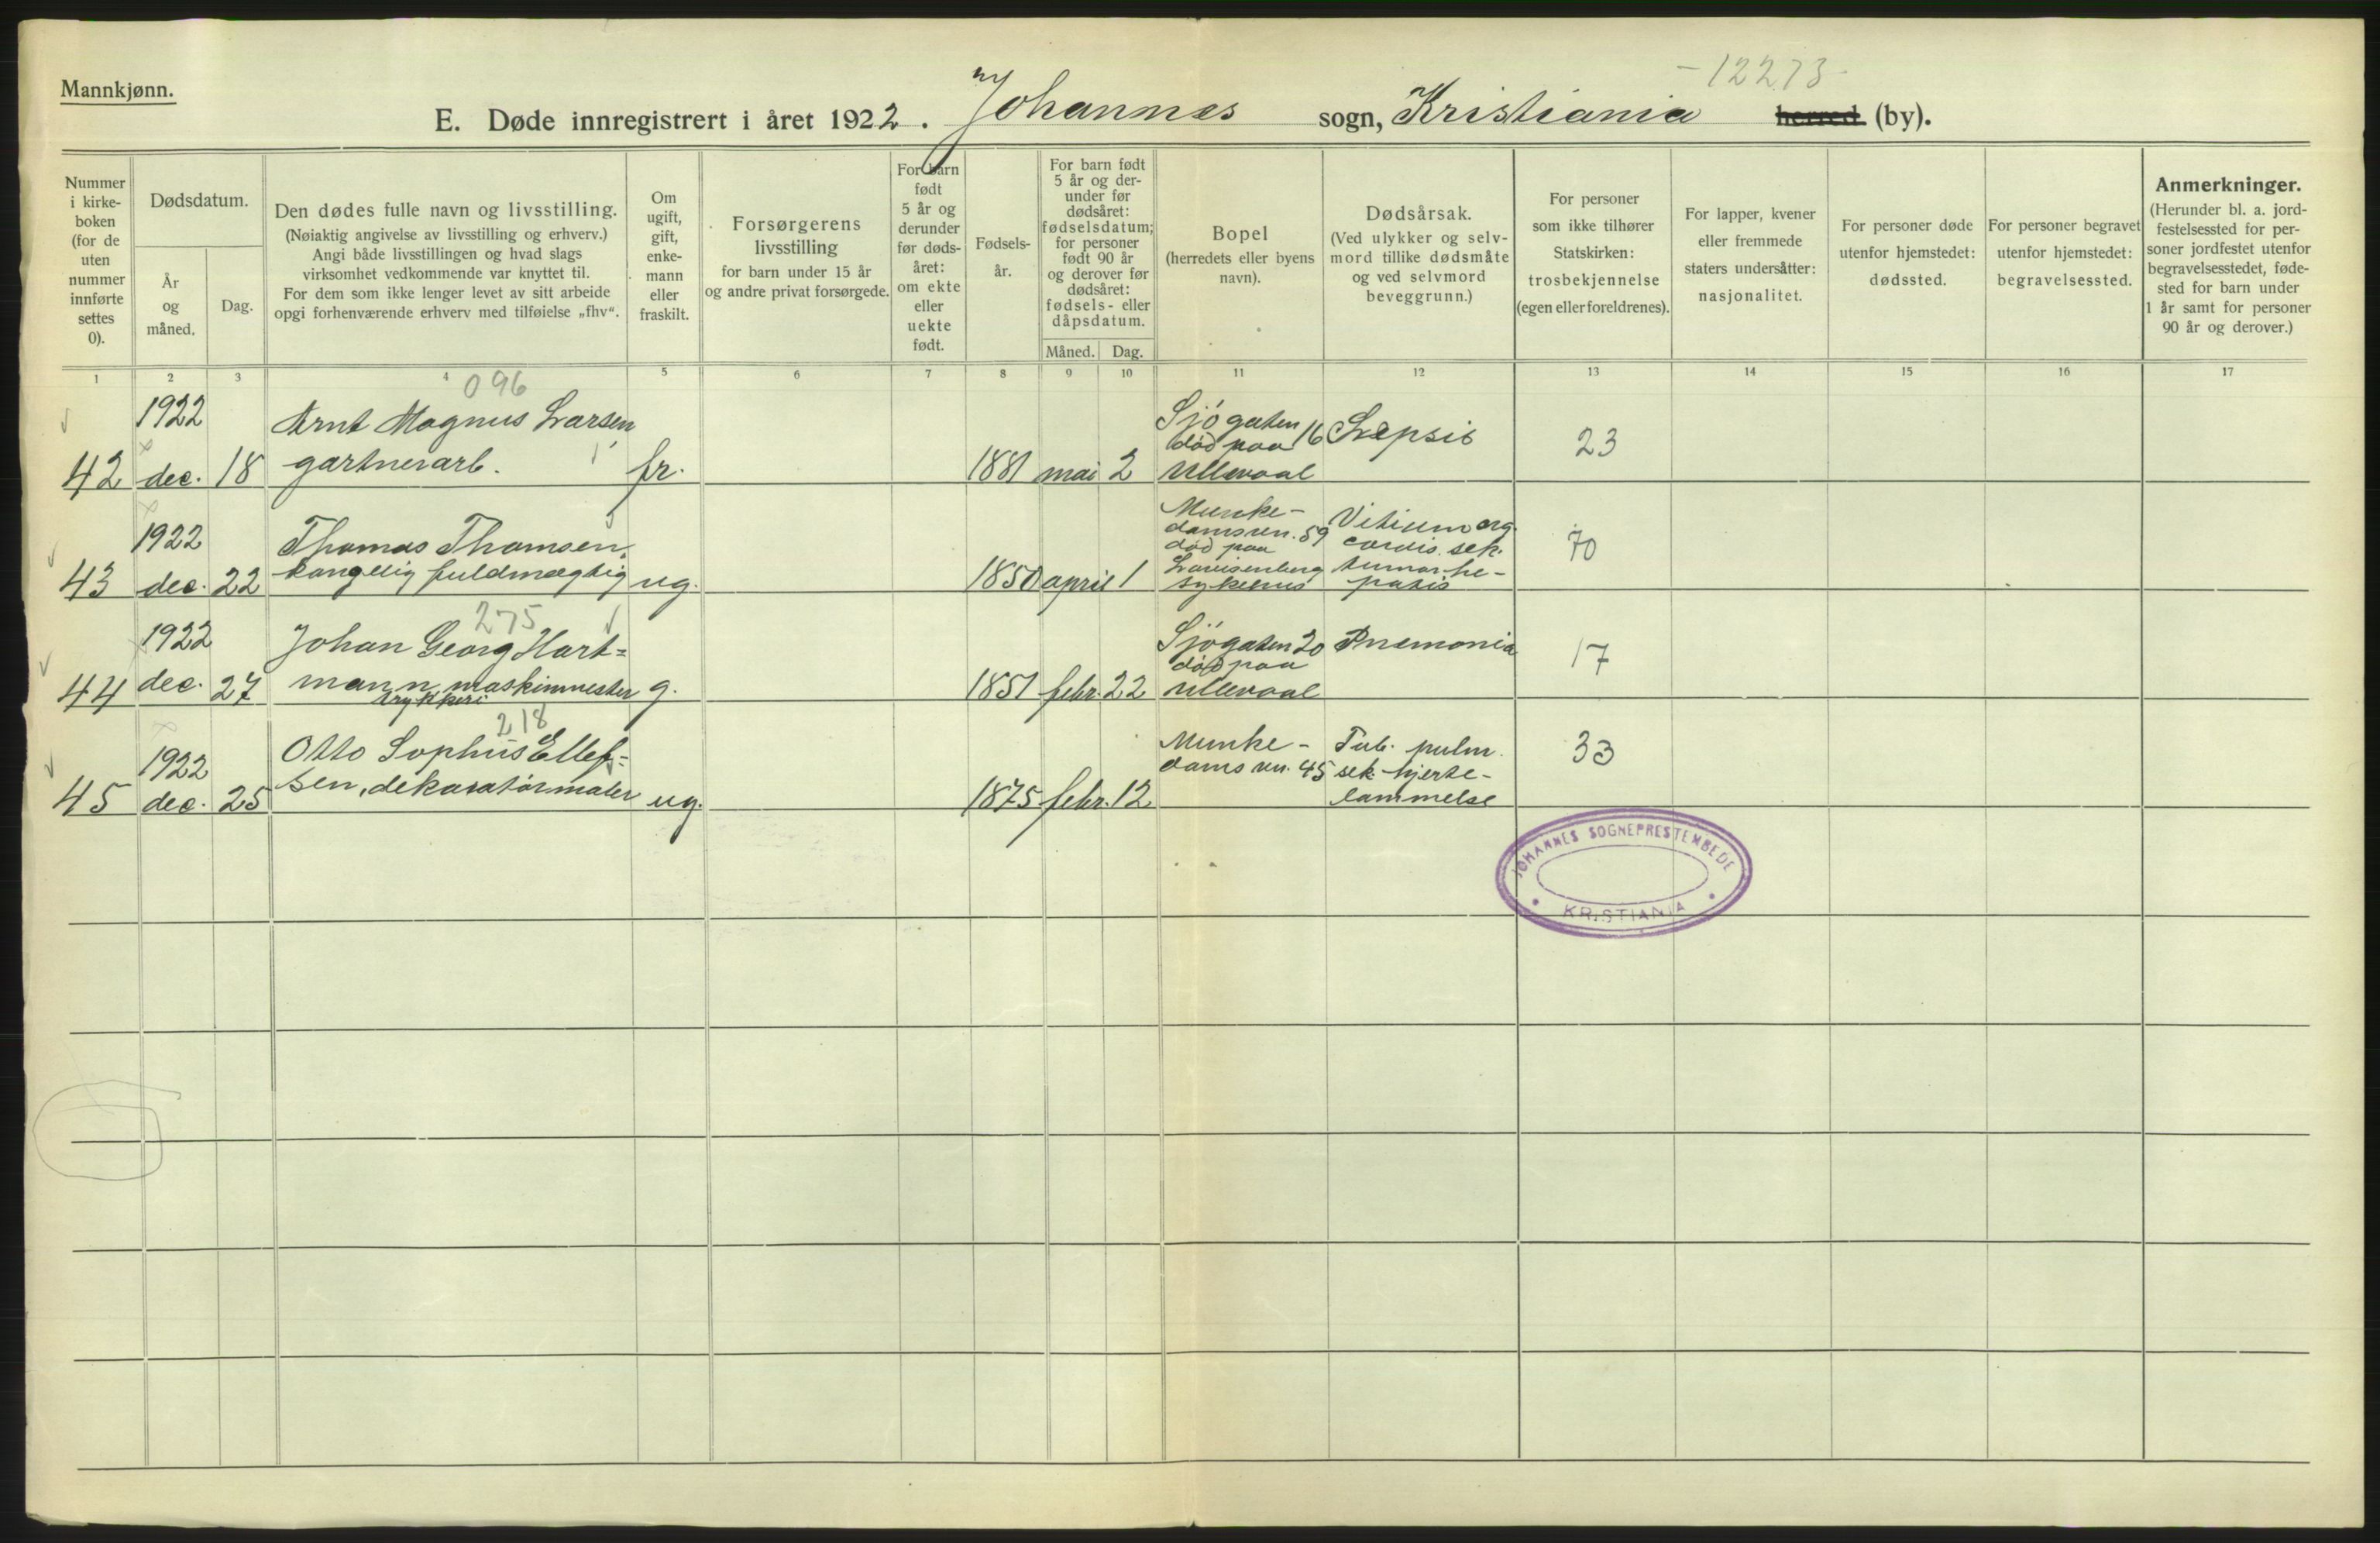 -12273-
Mannkjønn.
E. Døde innregistrert i året 1922. Johannes sogn, Kristiania herred (by).
Nummer i kirke-boken (for de uten nummer innførte settes 0).
Dødsdatum.
År og måned.
Dag.
Den dødes fulle navn og livsstilling.
(Nøiaktig angivelse av livsstilling og erhverv.)
Angi både livsstillingen og hvad slags
virksomhet vedkommende var knyttet til.
For dem som ikke lenger levet av sitt arbeide
opgi forhenværende erhverv med tilføielse „fhv“.
Om ugift, gift, enke-mann eller fraskilt.
Forsørgerens
livsstilling
for barn under 15 år
og andre privat forsørgede.
For barn født 5 år og derunder før døds-året: om ekte eller uekte født.
Fødsels-år.
For barn født
5 år og der-
under før
dødsåret:
fødselsdatum;
for personer
født 90 år
og derover før
dødsåret:
fødsels- eller
dåpsdatum.
Måned. Dag.
Bopel
(herredets eller byens
navn).
Dødsårsak.
(Ved ulykker og selv-
mord tillike dødsmåte
og ved selvmord
beveggrunn.)
For personer
som ikke tilhører
Statskirken:
trosbekjennelse
(egen eller foreldrenes).
For lapper, kvener
eller fremmede
staters undersåtter:
nasjonalitet.
For personer døde
utenfor hjemstedet:
dødssted.
For personer begravet
utenfor hjemstedet:
begravelsessted.
Anmerkninger.
(Herunder bl. a. jord-
festelsessted for per-
soner jordfestet utenfor
begravelsesstedet, føde-
sted for barn under
1 år samt for personer
90 år og derover.)
1 2 3 4 5 6 7 8 9 10 11 12 13 14 15 16 17
096
42 1922 dec. 18
Arnt Magnus Larsen
gartnerarb.
fr.
1881 mai 2
Sjögaten 16
död paa
Ullevaal
Sepsis
23
43 1922 dec. 22
Thomas Thomsen,
kongelig fuldmægtig
ug.
1850 april 1
Munke-
damsven. 59
död paa
Lovisenberg
sykehus
Vitium org.
cordis. sek.
tumor he-
patis
70
275
44 1922 dec. 27
Johan Georg Hart=
mann, maskinmester
trykkeri
g.
1851 febr. 22
Sjögaten 20
död paa
Ullevaal
Pnemonia
17
218
45 1922 dec. 25
Otto Sophus Ellef=
sen, dekoratörmaler
ug.
1875 febr. 12
Munke-
damsven. 45
Tub. pulm.
sek. hjerte-
lammelse
33
JOHANNES SOGNEPRESTEMBEDE
KRISTIANIA